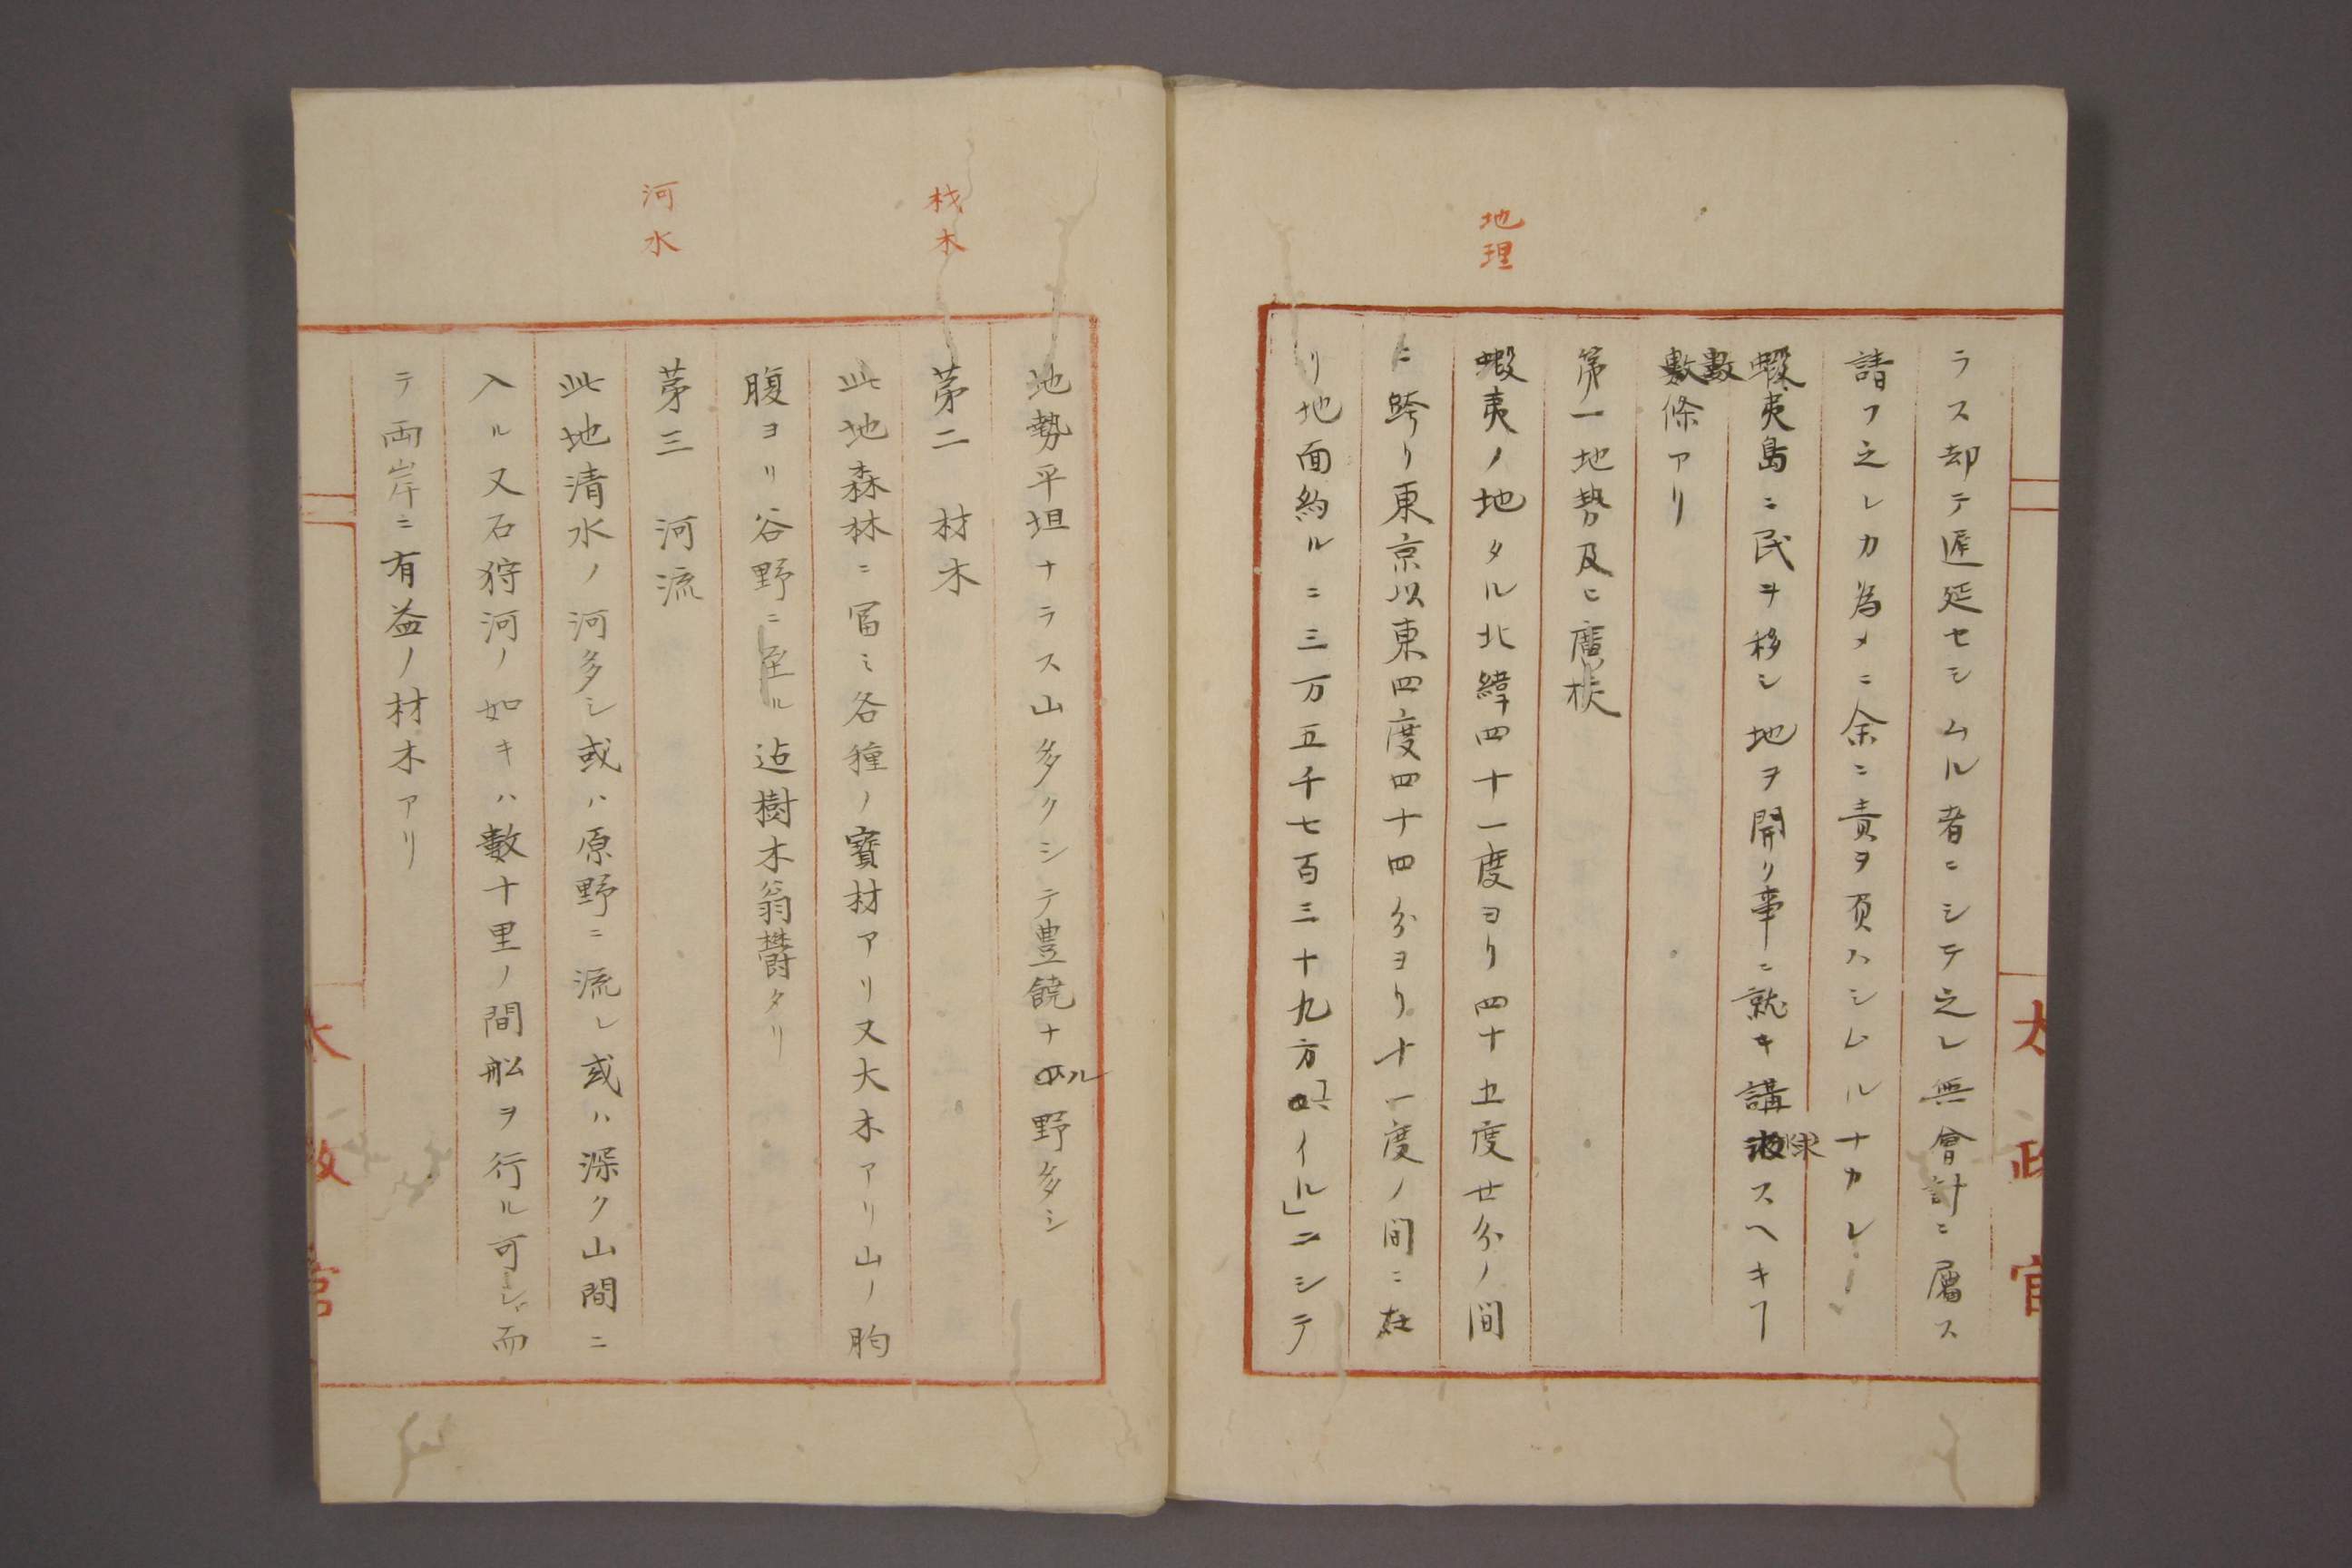 太政官
ラス却テ遅延セシムル者ニシテ之レ無會計ニ屬ス
請フ之レカ為メニ余ニ責ヲ負ハシムルナカレ
蝦夷島ニ民ヲ移シ地ヲ開り事ニ就キ講求スヘキヿ
數條アリ
地理
第一地勢及ヒ廣狹
蝦夷ノ地タル北緯四十一度ヨリ四十五度廿分ノ間
ニ跨リ東京以東四度四十四分ヨリ十一度ノ間ニ在
リ地面約ルニ三万五千七百三十九方イル」ニシテ
地勢平坦ナラス山多クシテ豊饒ナル野多シ
材木
茅二 材木
此地森林ニ冨ミ各種ノ寳材アリ又大木アリ山ノ胸
腹ヨリ谷野ニ至ル迠樹木蓊鬱タリ
河水
茅三 河流
此地清水ノ河多シ或ハ原野ニ流レ或ハ深ク山間ニ
入ル又石狩河ノ如キハ數十里ノ間舩ヲ行ル可シ而
テ両岸ニ有益ノ材木アリ
太政官